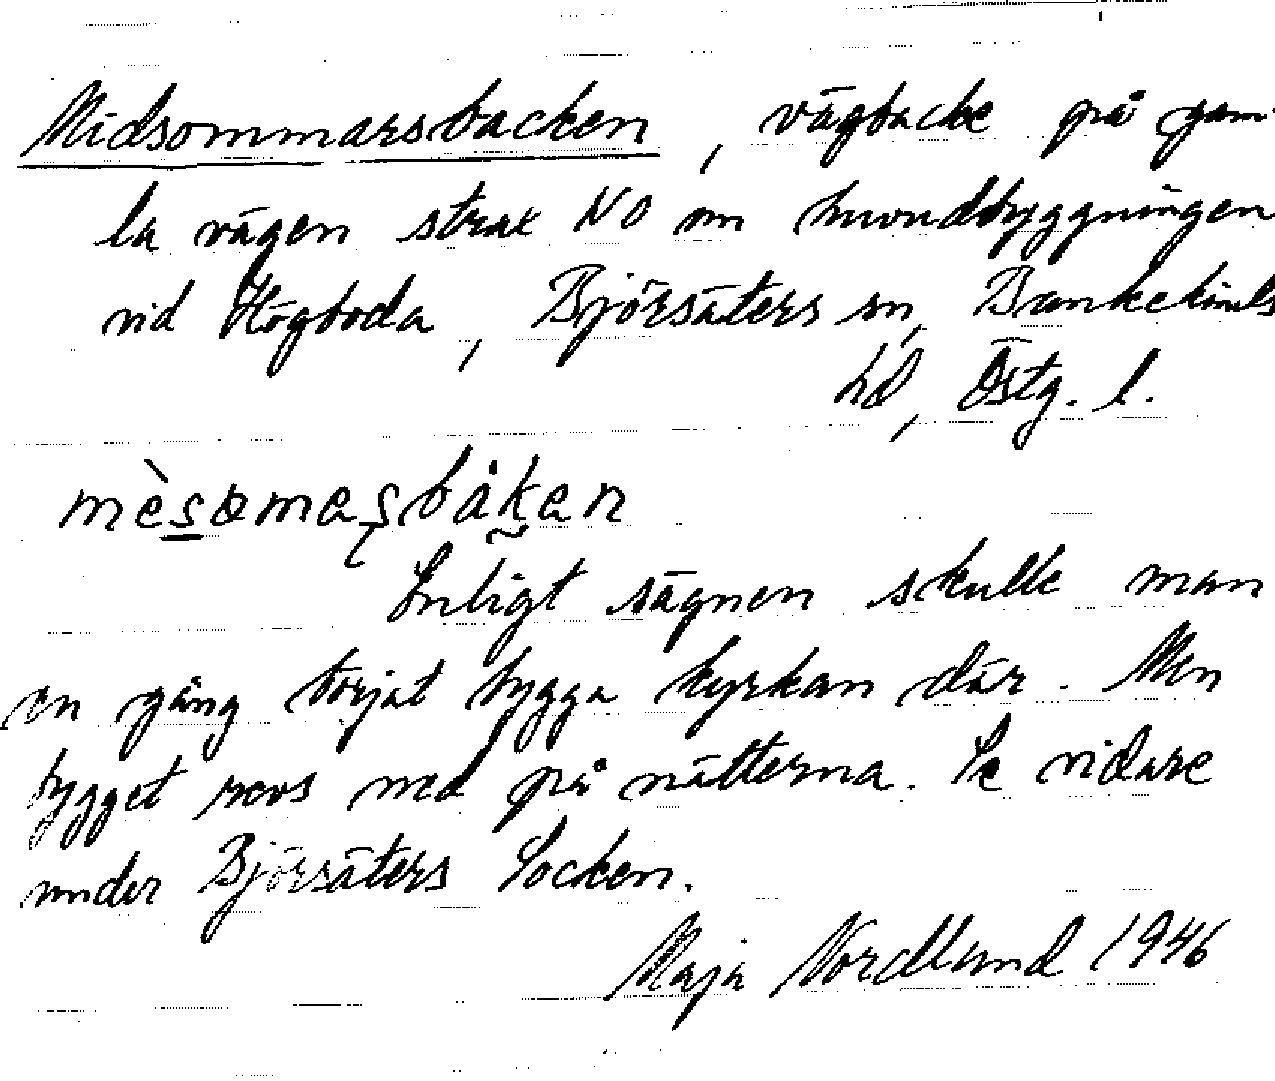 Midsommarsbacken, vägbacke på gam-
la vägen strax NO om huvudbyggningen
vid Högboda, Björsäters sn, Bankekinds
hd, Östg. l.
mèsomasbåkan
Enligt sägnen skulle man
en gång börjat bygga kyrkan där. Men
bygget revs ned på nätterna. Se vidare
under Björsäters Socken.
Maja Nordlund 1946